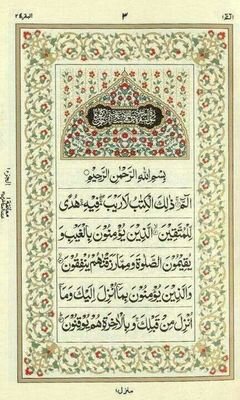 البقرة ٢
٣
الٓمّ ١
بِسْمِ اللّٰهِ الرَّحْمٰنِ الرَّحِيْمِ
الٓمّٓ ذٰلِكَ الْكِتٰبُ لَا رَيْبَ فِيْهِ هُدًى
لِّلْمُتَّقِيْنَ الَّذِيْنَ يُؤْمِنُوْنَ بِالْغَيْبِ وَ
يُقِيْمُوْنَ الصَّلٰوةَ وَمِمَّا رَزَقْنٰهُمْ يُنْفِقُوْنَ
وَالَّذِيْنَ يُؤْمِنُوْنَ بِمَآ اُنْزِلَ اِلَيْكَ وَمَآ
اُنْزِلَ مِنْ قَبْلِكَ وَبِالْاٰخِرَةِ هُمْ يُوْقِنُوْنَ
منزل ١